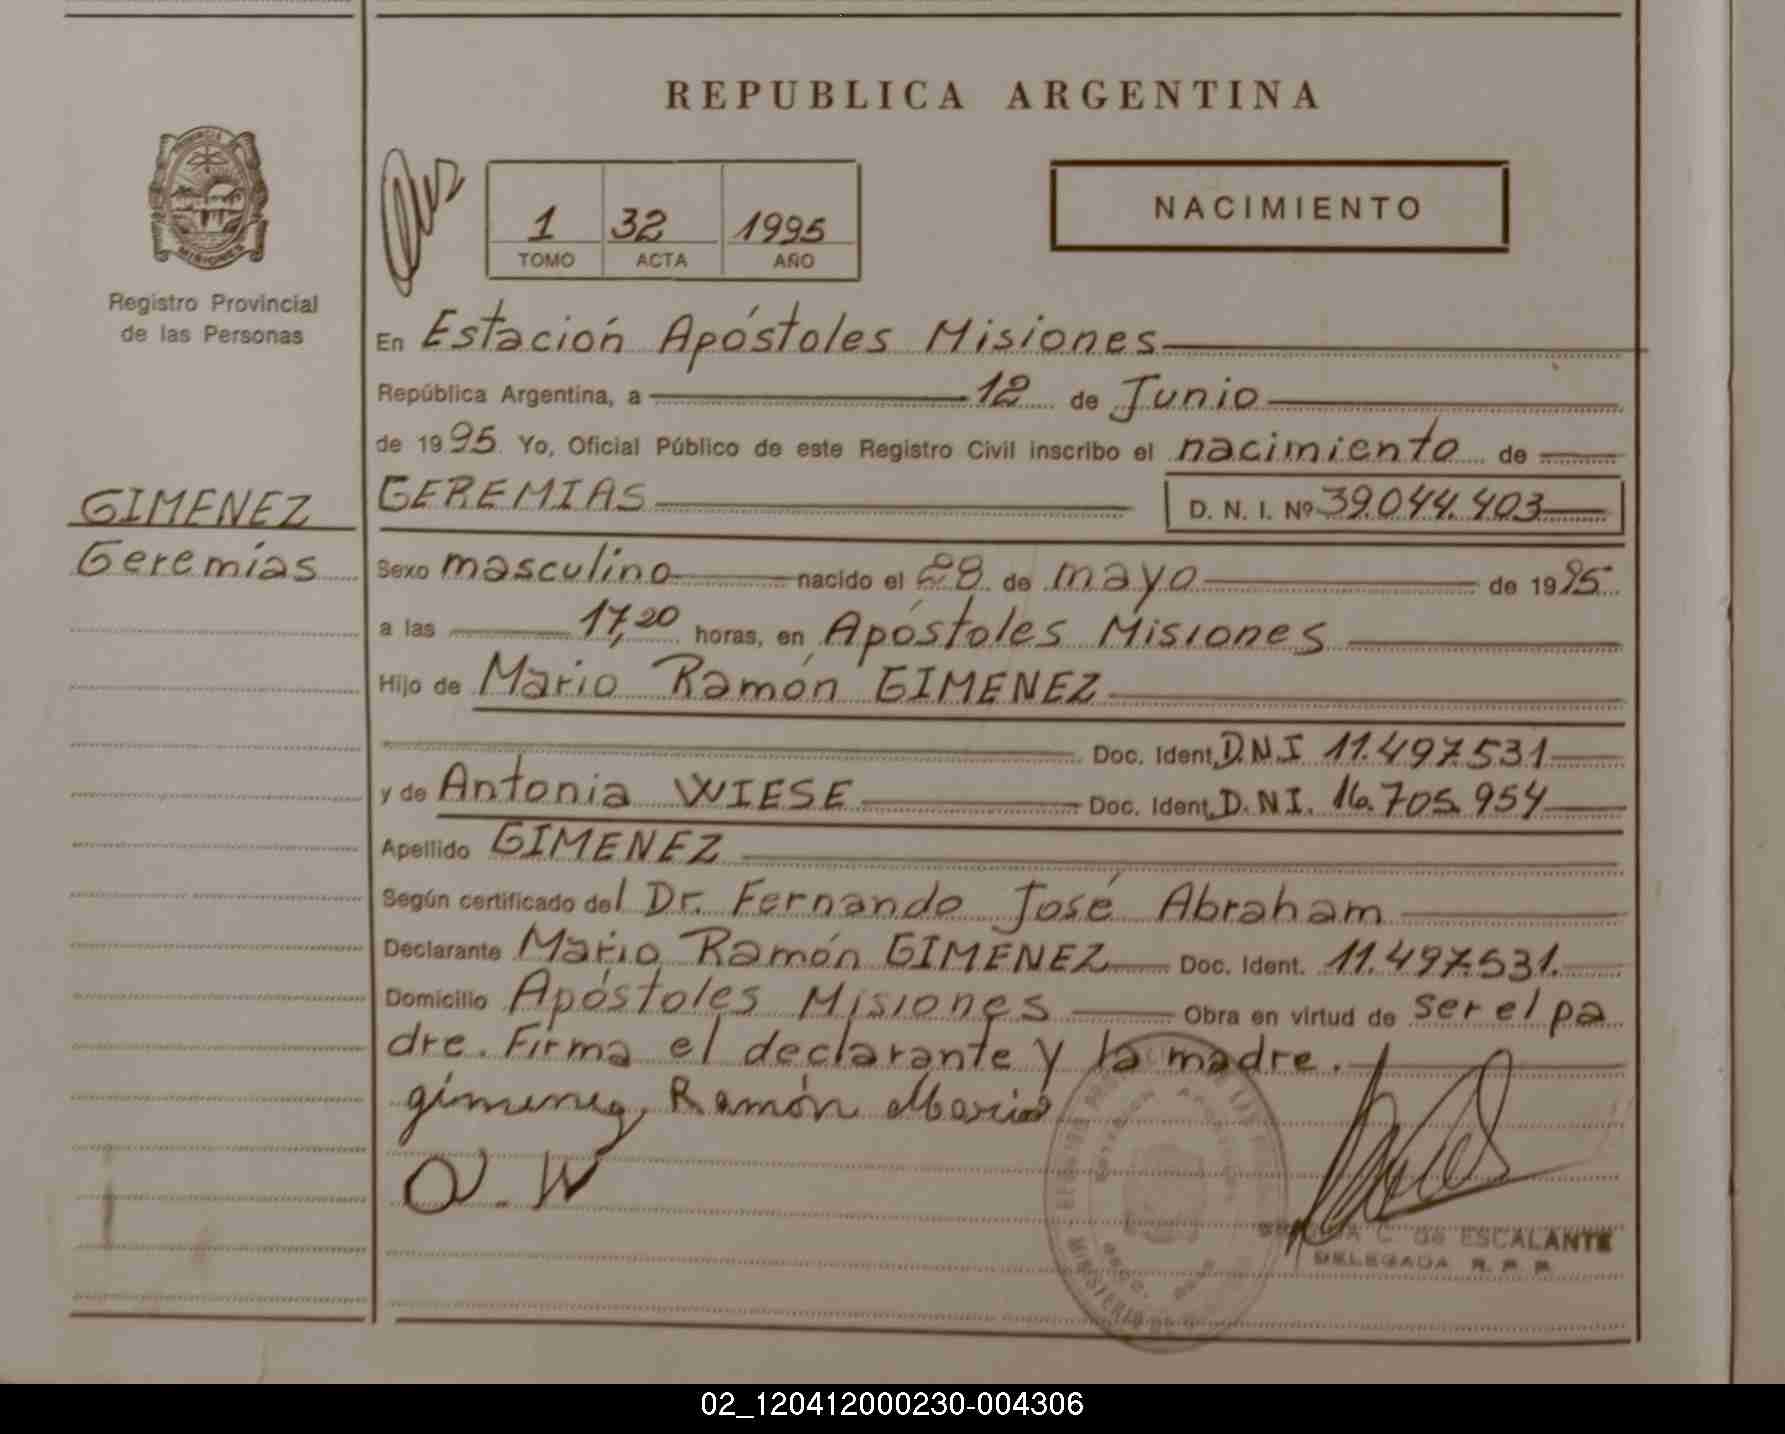 REPUBLICA ARGENTINA
PROVINCIA
MISIONES
Registro Provincial
de las Personas
1 32 1995
TOMO ACTA AÑO
NACIMIENTO
En Estación Apóstoles Misiones
República Argentina, a 12 de Junio
de 1995. Yo, Oficial Público de este Registro Civil inscribo el nacimiento de
GIMENEZ
Geremías
GEREMIAS D. N. I. Nº 39.044.403
Sexo masculino nacido el 28 de mayo de 1995
a las 17,20 horas, en Apóstoles Misiones
Hijo de Mario Ramón GIMENEZ
Doc. Ident. D.N.I 11.497.531
y de Antonia WIESE Doc. Ident. D.NI. 16.705.954
Apellido GIMENEZ
Según certificado del Dr. Fernando José Abraham
Declarante Mario Ramón GIMENEZ Doc. Ident. 11.497.531.
Domicilio Apóstoles Misiones Obra en virtud de ser el pa
dre. Firma el declarante y la madre.
gimenez, Ramón Mario
MINISTERIO DE
C. de ESCALANTE
DELEGADA R. P. P.
02_120412000230-004306